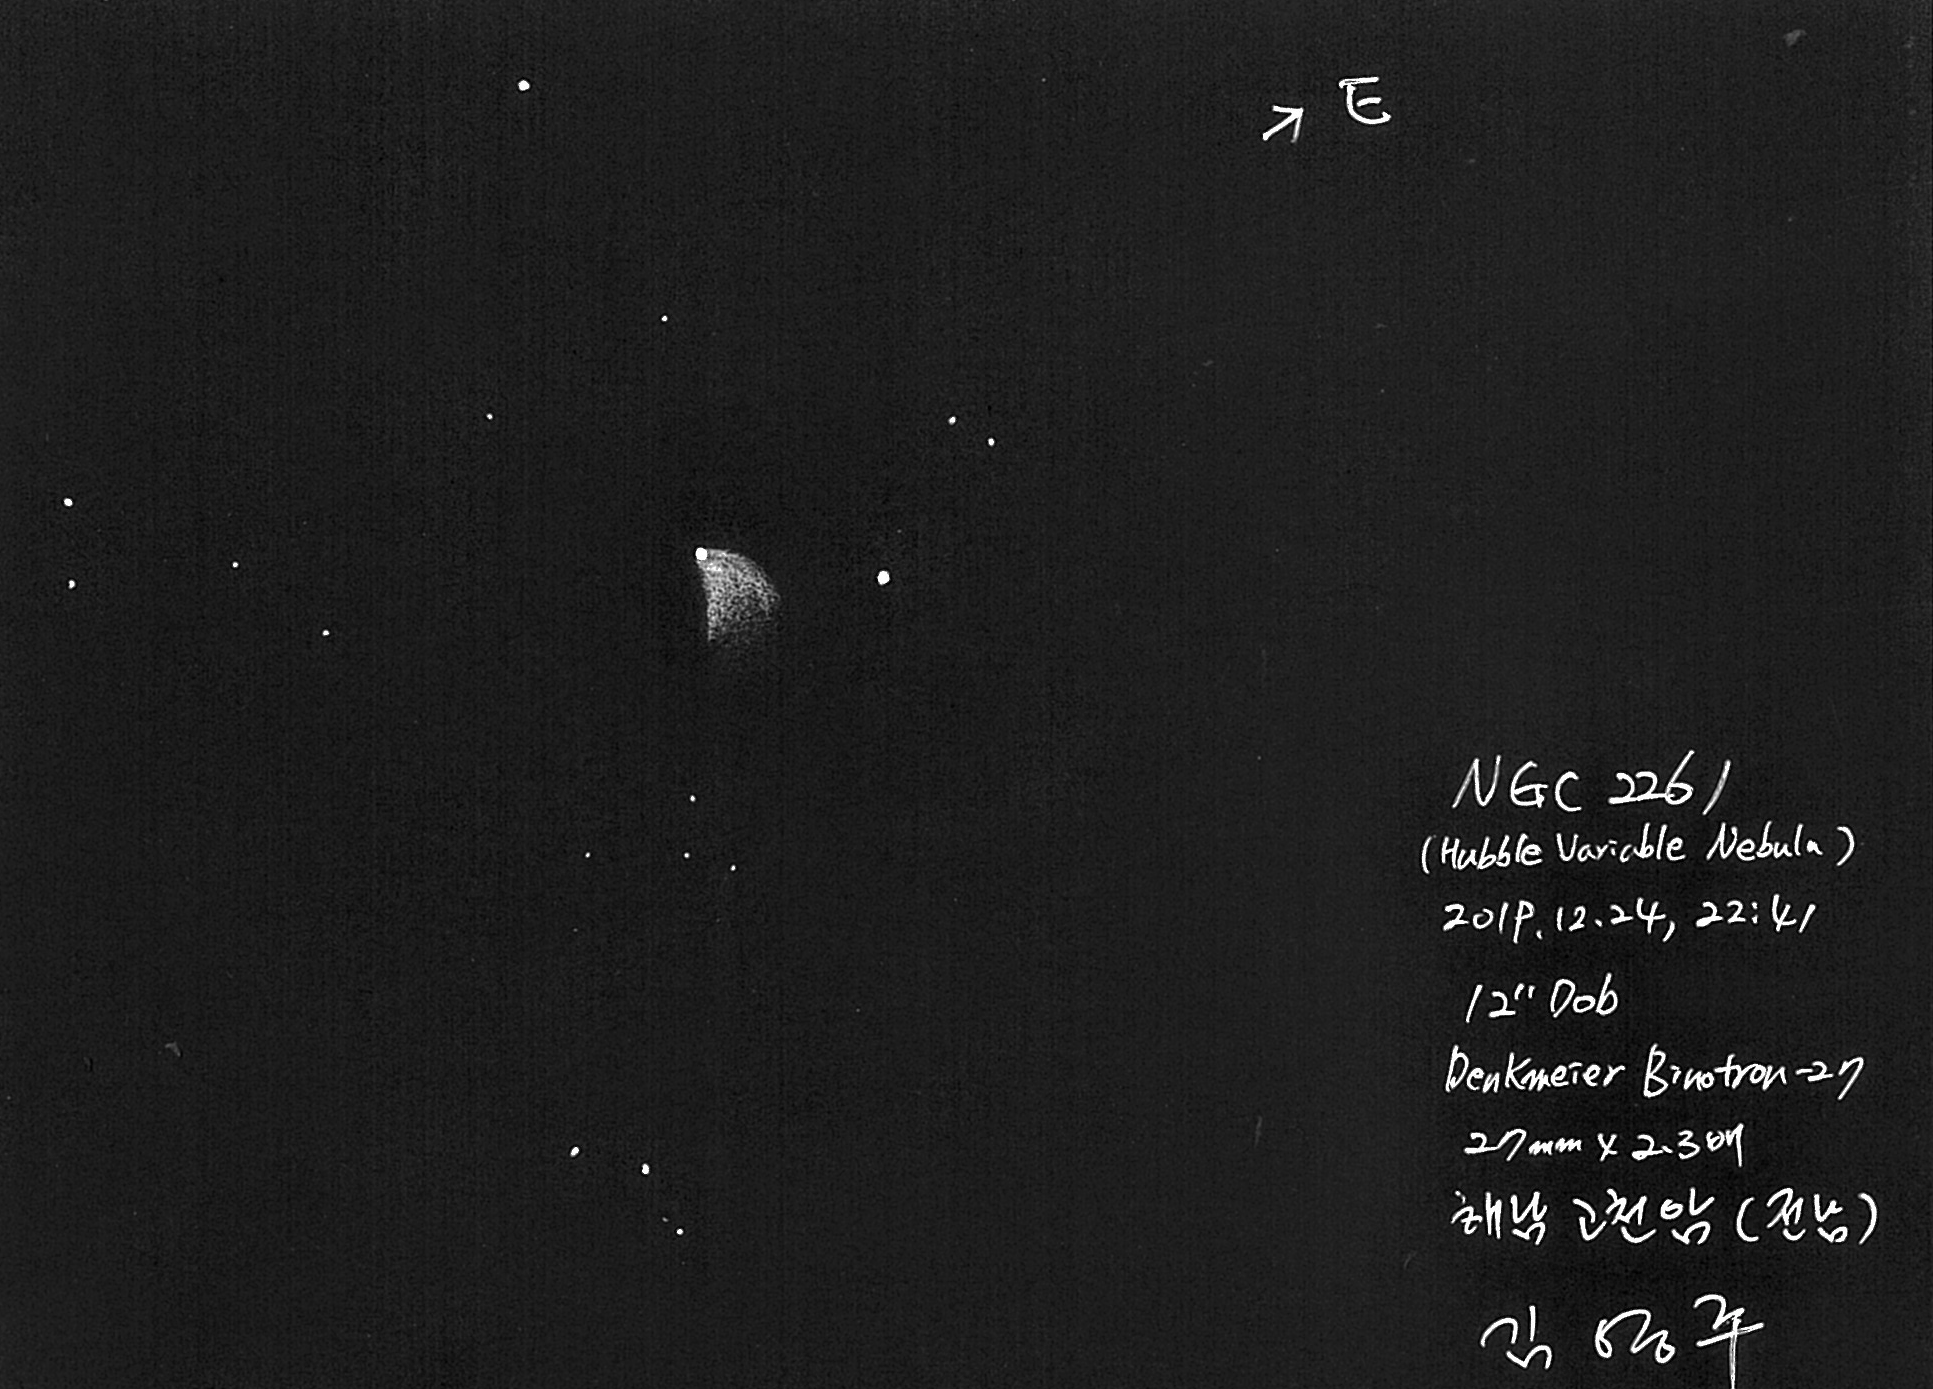 E
NGC 2261
(Hubble Variable Nebula)
2019.12.24, 22:41
12" Dob
Denkmeier Binotron-27
27mm x 2.3배
해남 고천암 (전남)
김영주